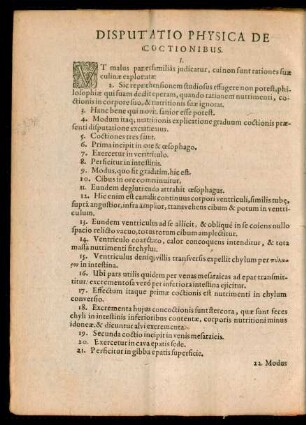 DISPUTATIO PHYSICA DE
COCTIONIBUS.
1.
VT malus paterfamiliâs judicatur, cui non sunt rationes suæ
culinæ exploratæ:
2. Sic reprehensionem studiosus effugere non potest, phi-
losophiæ qui suam dedit operam, quando rationem nutrimenti, co-
ctionis in corpore suo, & nutritionis suæ ignorat.
3. Hanc bene qui novit, sanior esse potest.
4. Modum itaq; nutritionis explicatione graduum coctionis præ-
senti disputatione excutiemus.
5. Coctiones tres sunt.
6. Prima incipit in ore & œsophago.
7. Exercetur in ventriculo.
8. Perficitur in intestinis.
9. Modus, quo fit gradatim, hic est.
10. Cibus in ore comminuitur.
11. Eundem deglutiendo attrahit œsophagus.
12. Hic enim est canalis continuus corpori ventriculi, similis tubę,
suprà angustior, infra amplior, transvehens cibum & potum in ventri-
culum.
13. Eundem ventriculus ad se allicit, & obliquè in se coiens nullo
spacio relicto vacuo, totus totum cibum amplectitur.
14. Ventriculo coarctato, calor concoquens intenditur, & tota
massa nutrimenti fit chylus.
15. Ventriculus deniq; villis transversis expellit chylum per
in intestina.
16. Ubi pars utilis quidem per venas mesaraicas ad epar transmit-
titur: excrementosa verò per inferiora intestina ejicitur.
17. Effectum itaque primæ coctionis est nutrimenti in chylum
conversio.
18. Excrementa hujus concoctionis sunt stercora, quæ sunt feces
chyli in intestinis inferioribus contentæ, corporis nutritioni minus
idoneæ, & dicuntur alvi excrementa.
19. Secunda coctio incipit in venis mesaraicis.
20. Exercetur in cava epatis sede.
21. Perficitur in gibba epatis superficie.
22. Modus